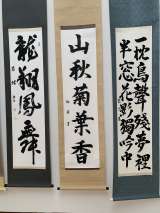 一枕鳥聲殘夢裡
半窓花影獨吟中
山秋菊葉香
龍翔鳳舞